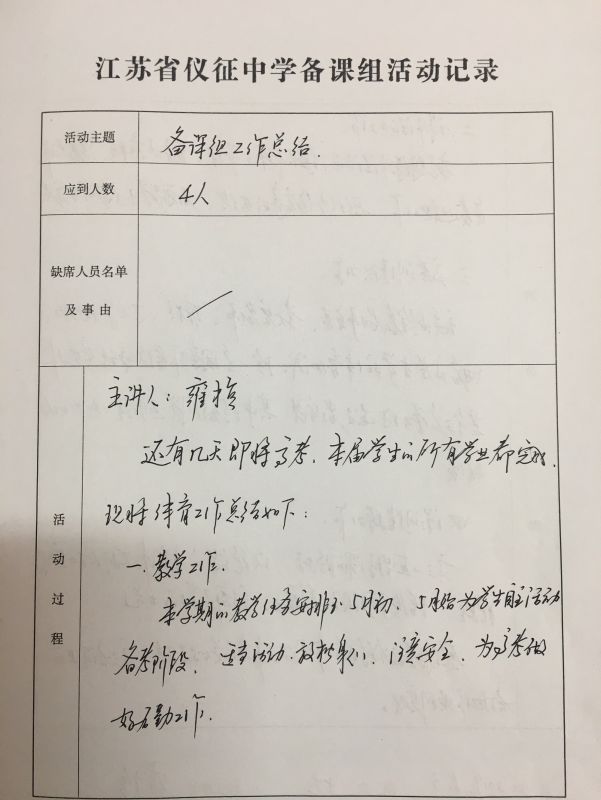 江苏省仪征中学备课组活动记录
活动主题
备课组工作总结.
应到人数
4人
缺席人员名单
及事由
活动过程
主讲人：雍
还有几天即将高考，本届学生的所有学业都完成，
现将体育工作总结如下：
一.教学工作.
本学期的教学任务安排到5月初，5月始为学生自主活动
备考阶段，适当活动.放松身心，注意安全，为高考做
好后勤工作.